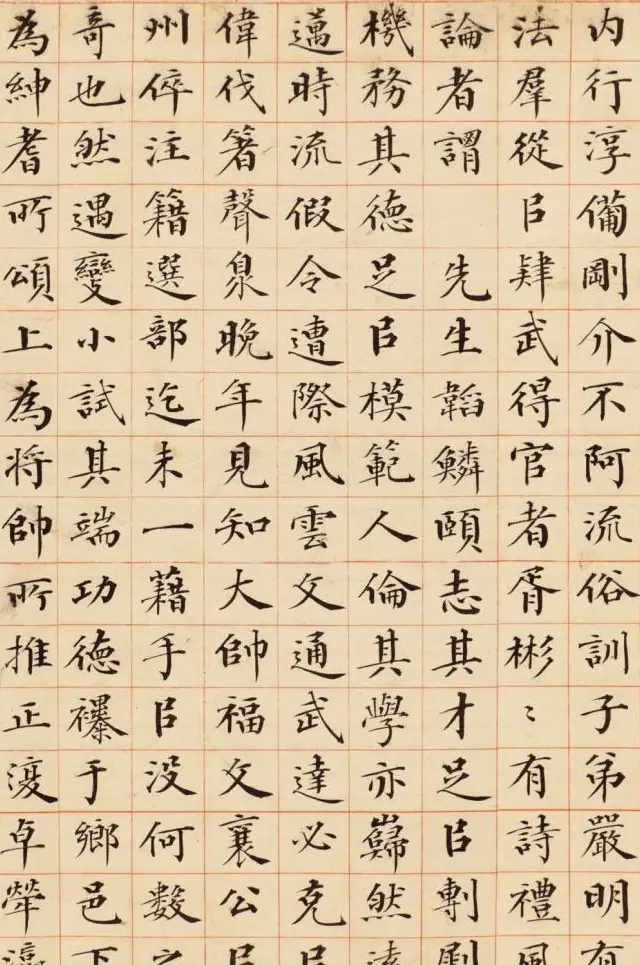 内行淳備剛介不阿流俗訓子弟嚴明有
法羣從㠯肄武得官者胥彬〻有詩禮風
論者謂先生韜鱗頤志其才足㠯剸劇
機務其德足㠯模範人倫其學亦巋然遠
邁時流假令遭際風雲文通武達必克㠯
偉伐箸聲泉晚年見知大帥福文襄公㠯
州倅注籍選部迄未一藉手㠯没何數之
奇也然遇變小試其端功德襮于鄉邑下
為紳耆所頌上為將帥所推正復卓犖瀛